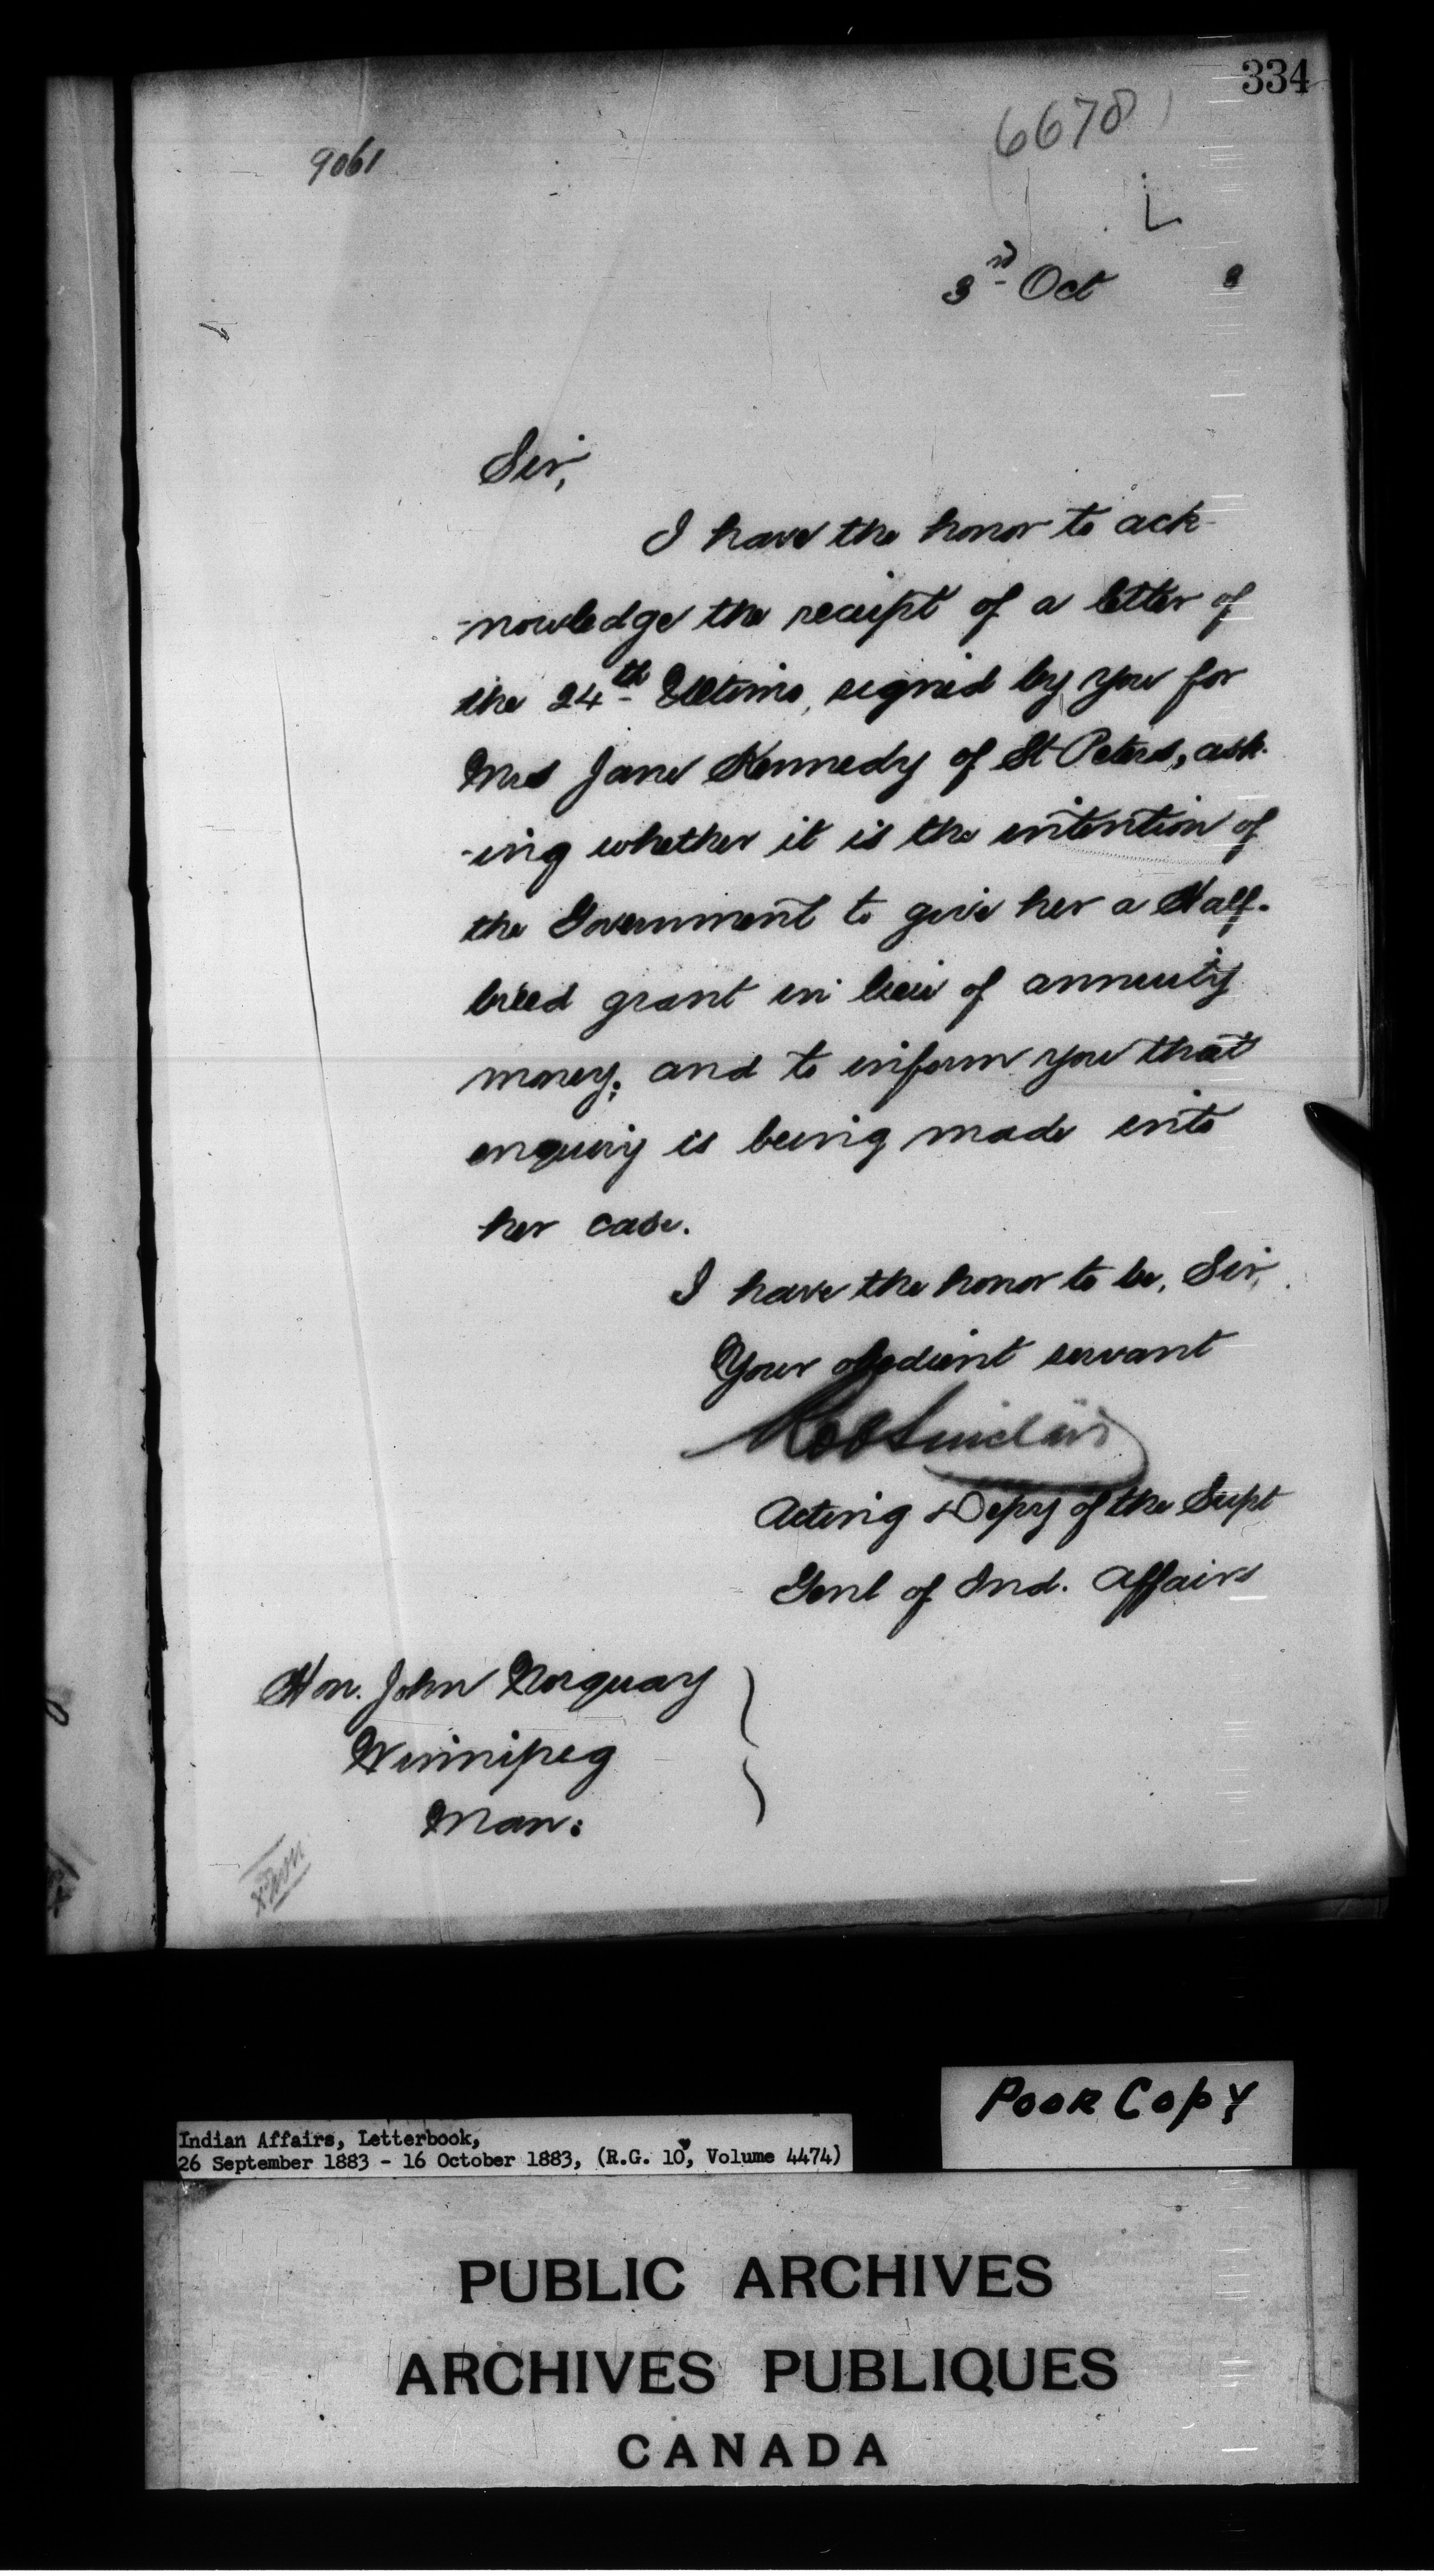 334
6678
9061
3rd Oct 8
Sir,
I have the honor to ack-
-nowledge the receipt of a letter of
the 24th Ultimo, signed by you for
Mrs Jane Kennedy of St Peters, ask-
-ing whether it is the intention of
the Government to give her a Half-
breed grant in lieu of annuity
money; and to inform you that
enquiry is being made into
her case.
I have the honor to be, Sir,
Your obedient servant
Rob Sinclair
Acting Depy of the Supt
Genl of Ind. Affairs
Hon. John Norquay
Winnipeg
Man:
Poor Copy
Indian Affairs, Letterbook,
26 September 1883 - 16 October 1883, (R.G. 10, Volume 4474)
PUBLIC ARCHIVES
ARCHIVES PUBLIQUES
CANADA